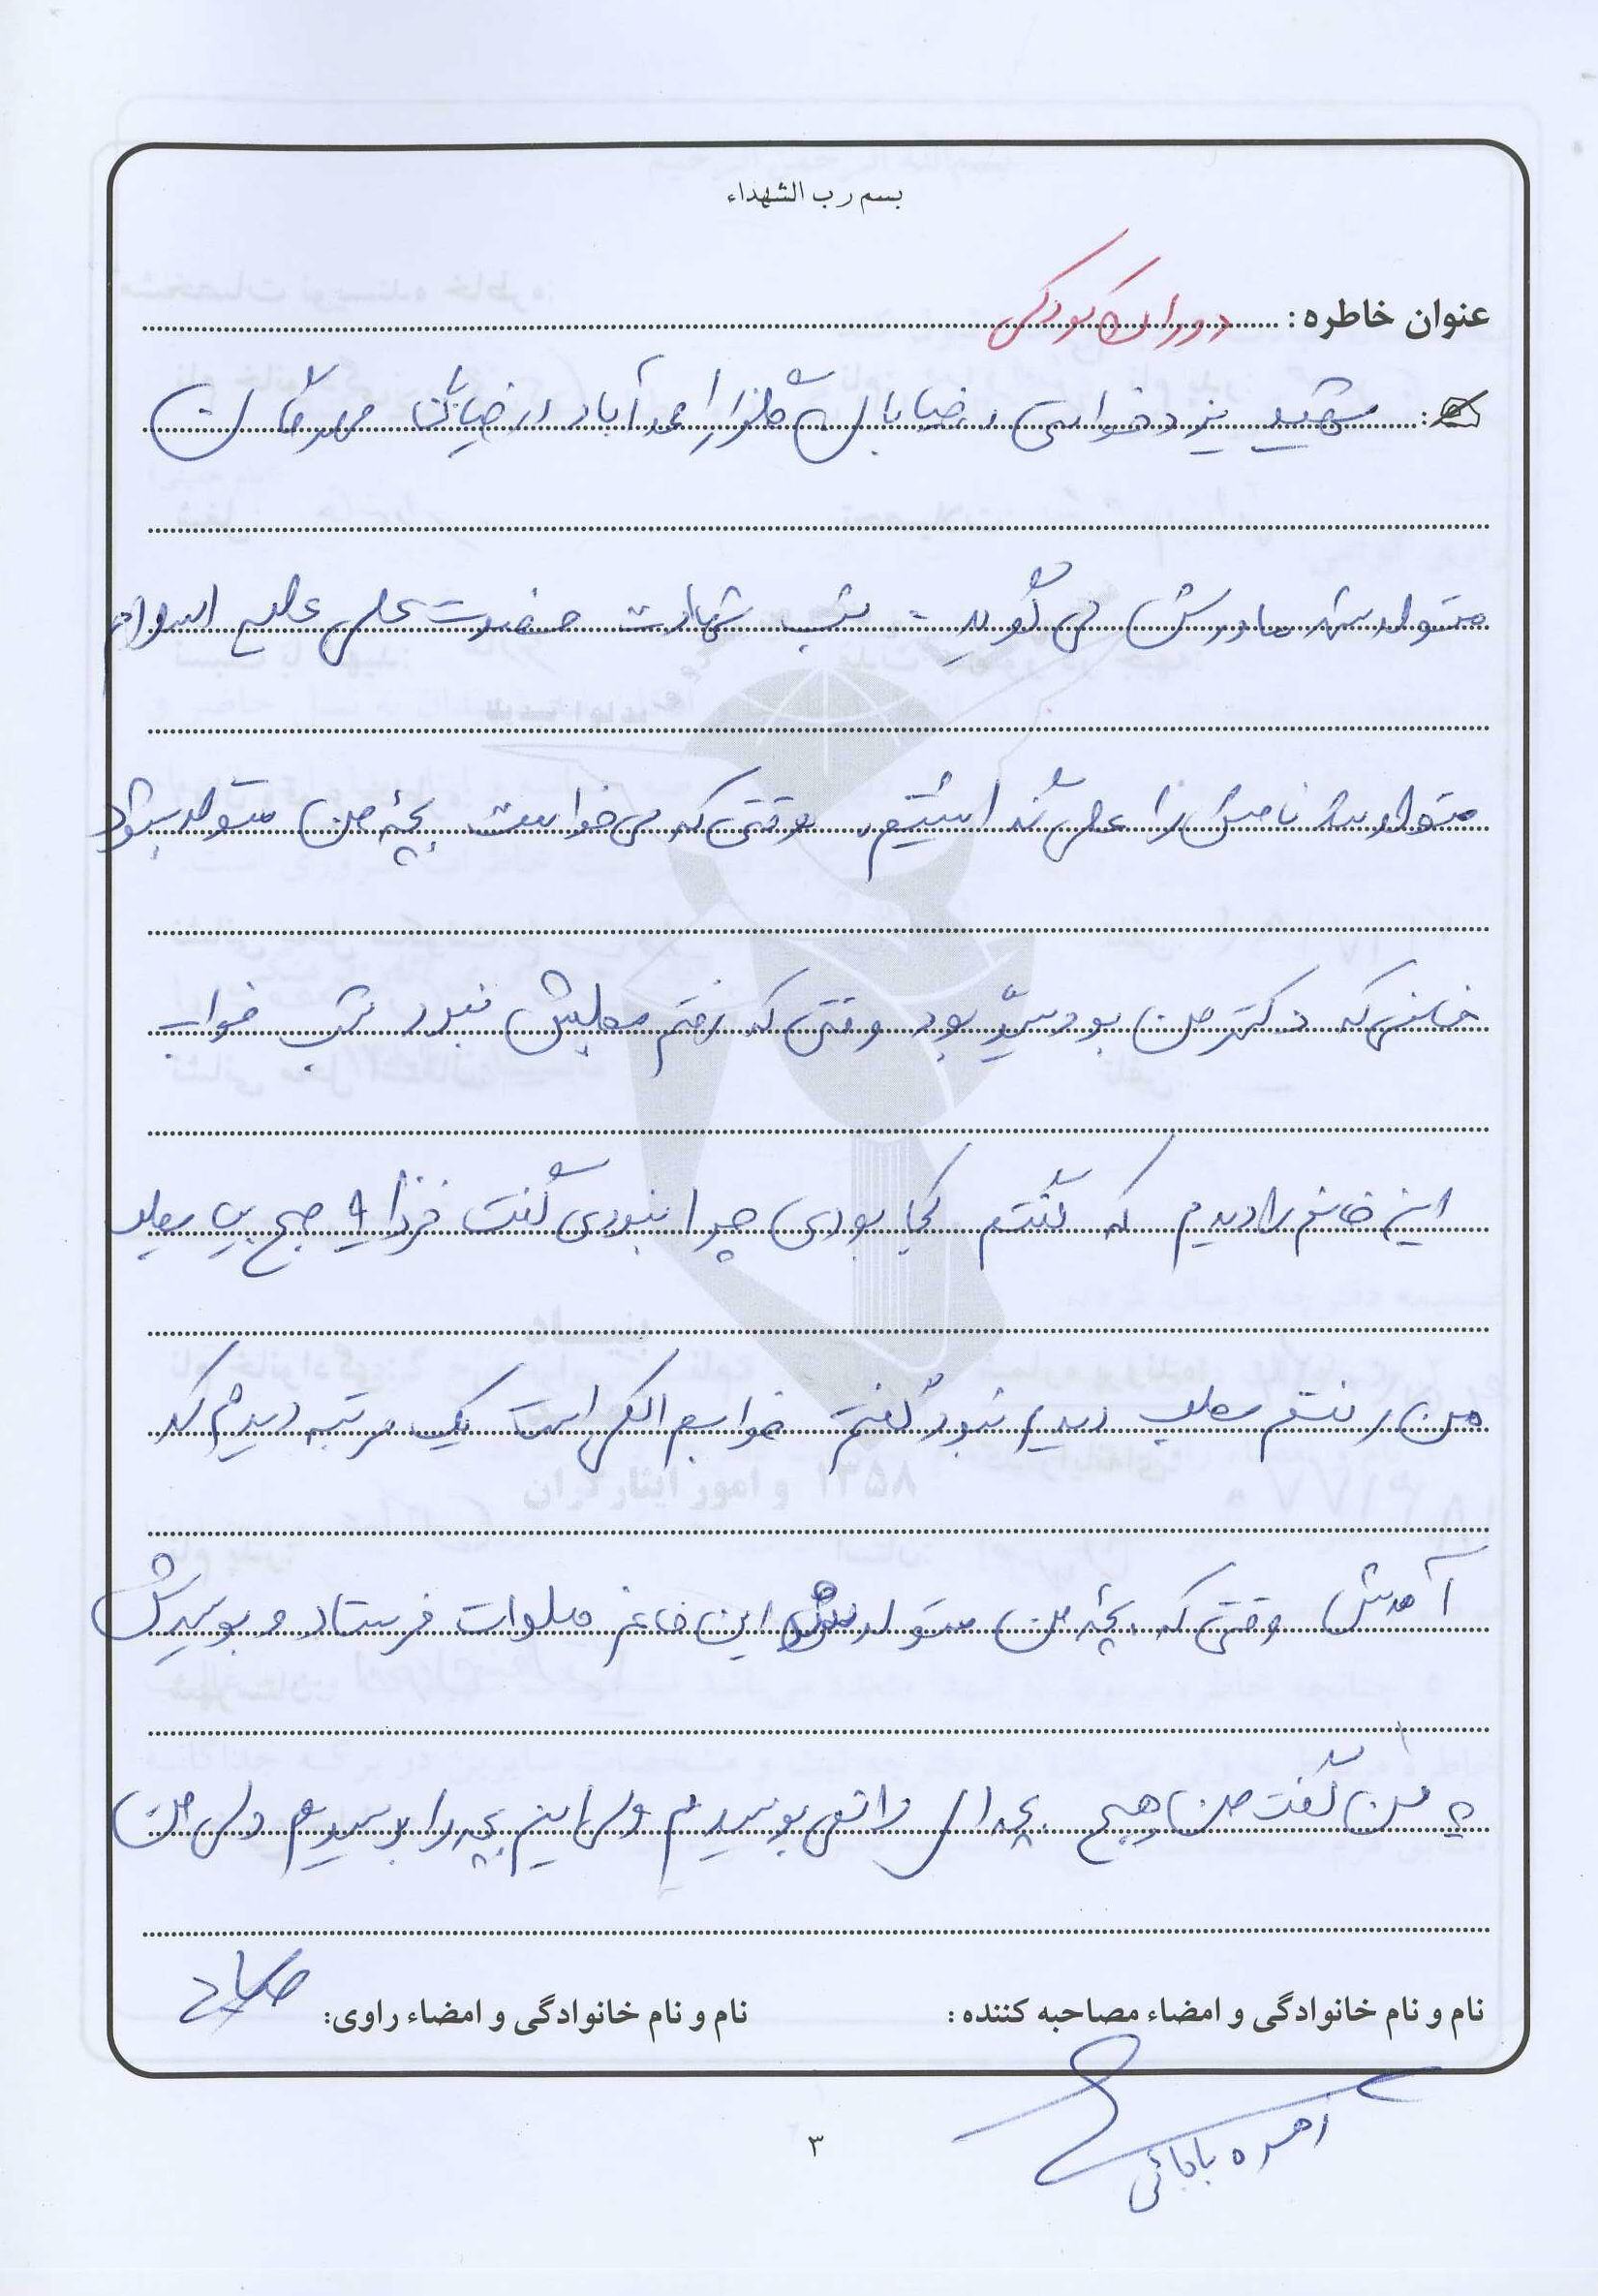 بسم رب الشهداء
عنوان خاطره: دوران کودکی
شهید یزدخواستی در خیابان گلزار احمدآباد در خیابان
متولد شد مادرش می گوید: شب شهادت حضرت علی علیه السلام
متولد شد نامش را علی گذاشتیم. وقتی که می خواست بچه من متولد بشود
خانمی که دکتر من بود سیّد بود وقتی که رفتم مطبش نبود شب خواب
این خانم را دیدم که گفتم کجا بودی چرا نبودی گفت فردا ۹ صبح بیا مطب
من رفتم مطب دیدم نبود گفتم خوابم الکی است یک مرتبه دیدم که
آمدش وقتی که بچه من متولد شد این خانم صلوات فرستاد و بوسیدش
به من گفت من هیچ بچه ای را نمی بوسیدم ولی این بچه را بوسیدم ولی من
نام و نام خانوادگی و امضاء مصاحبه کننده: نام و نام خانوادگی و امضاء راوی:
زهره بابائی
۳